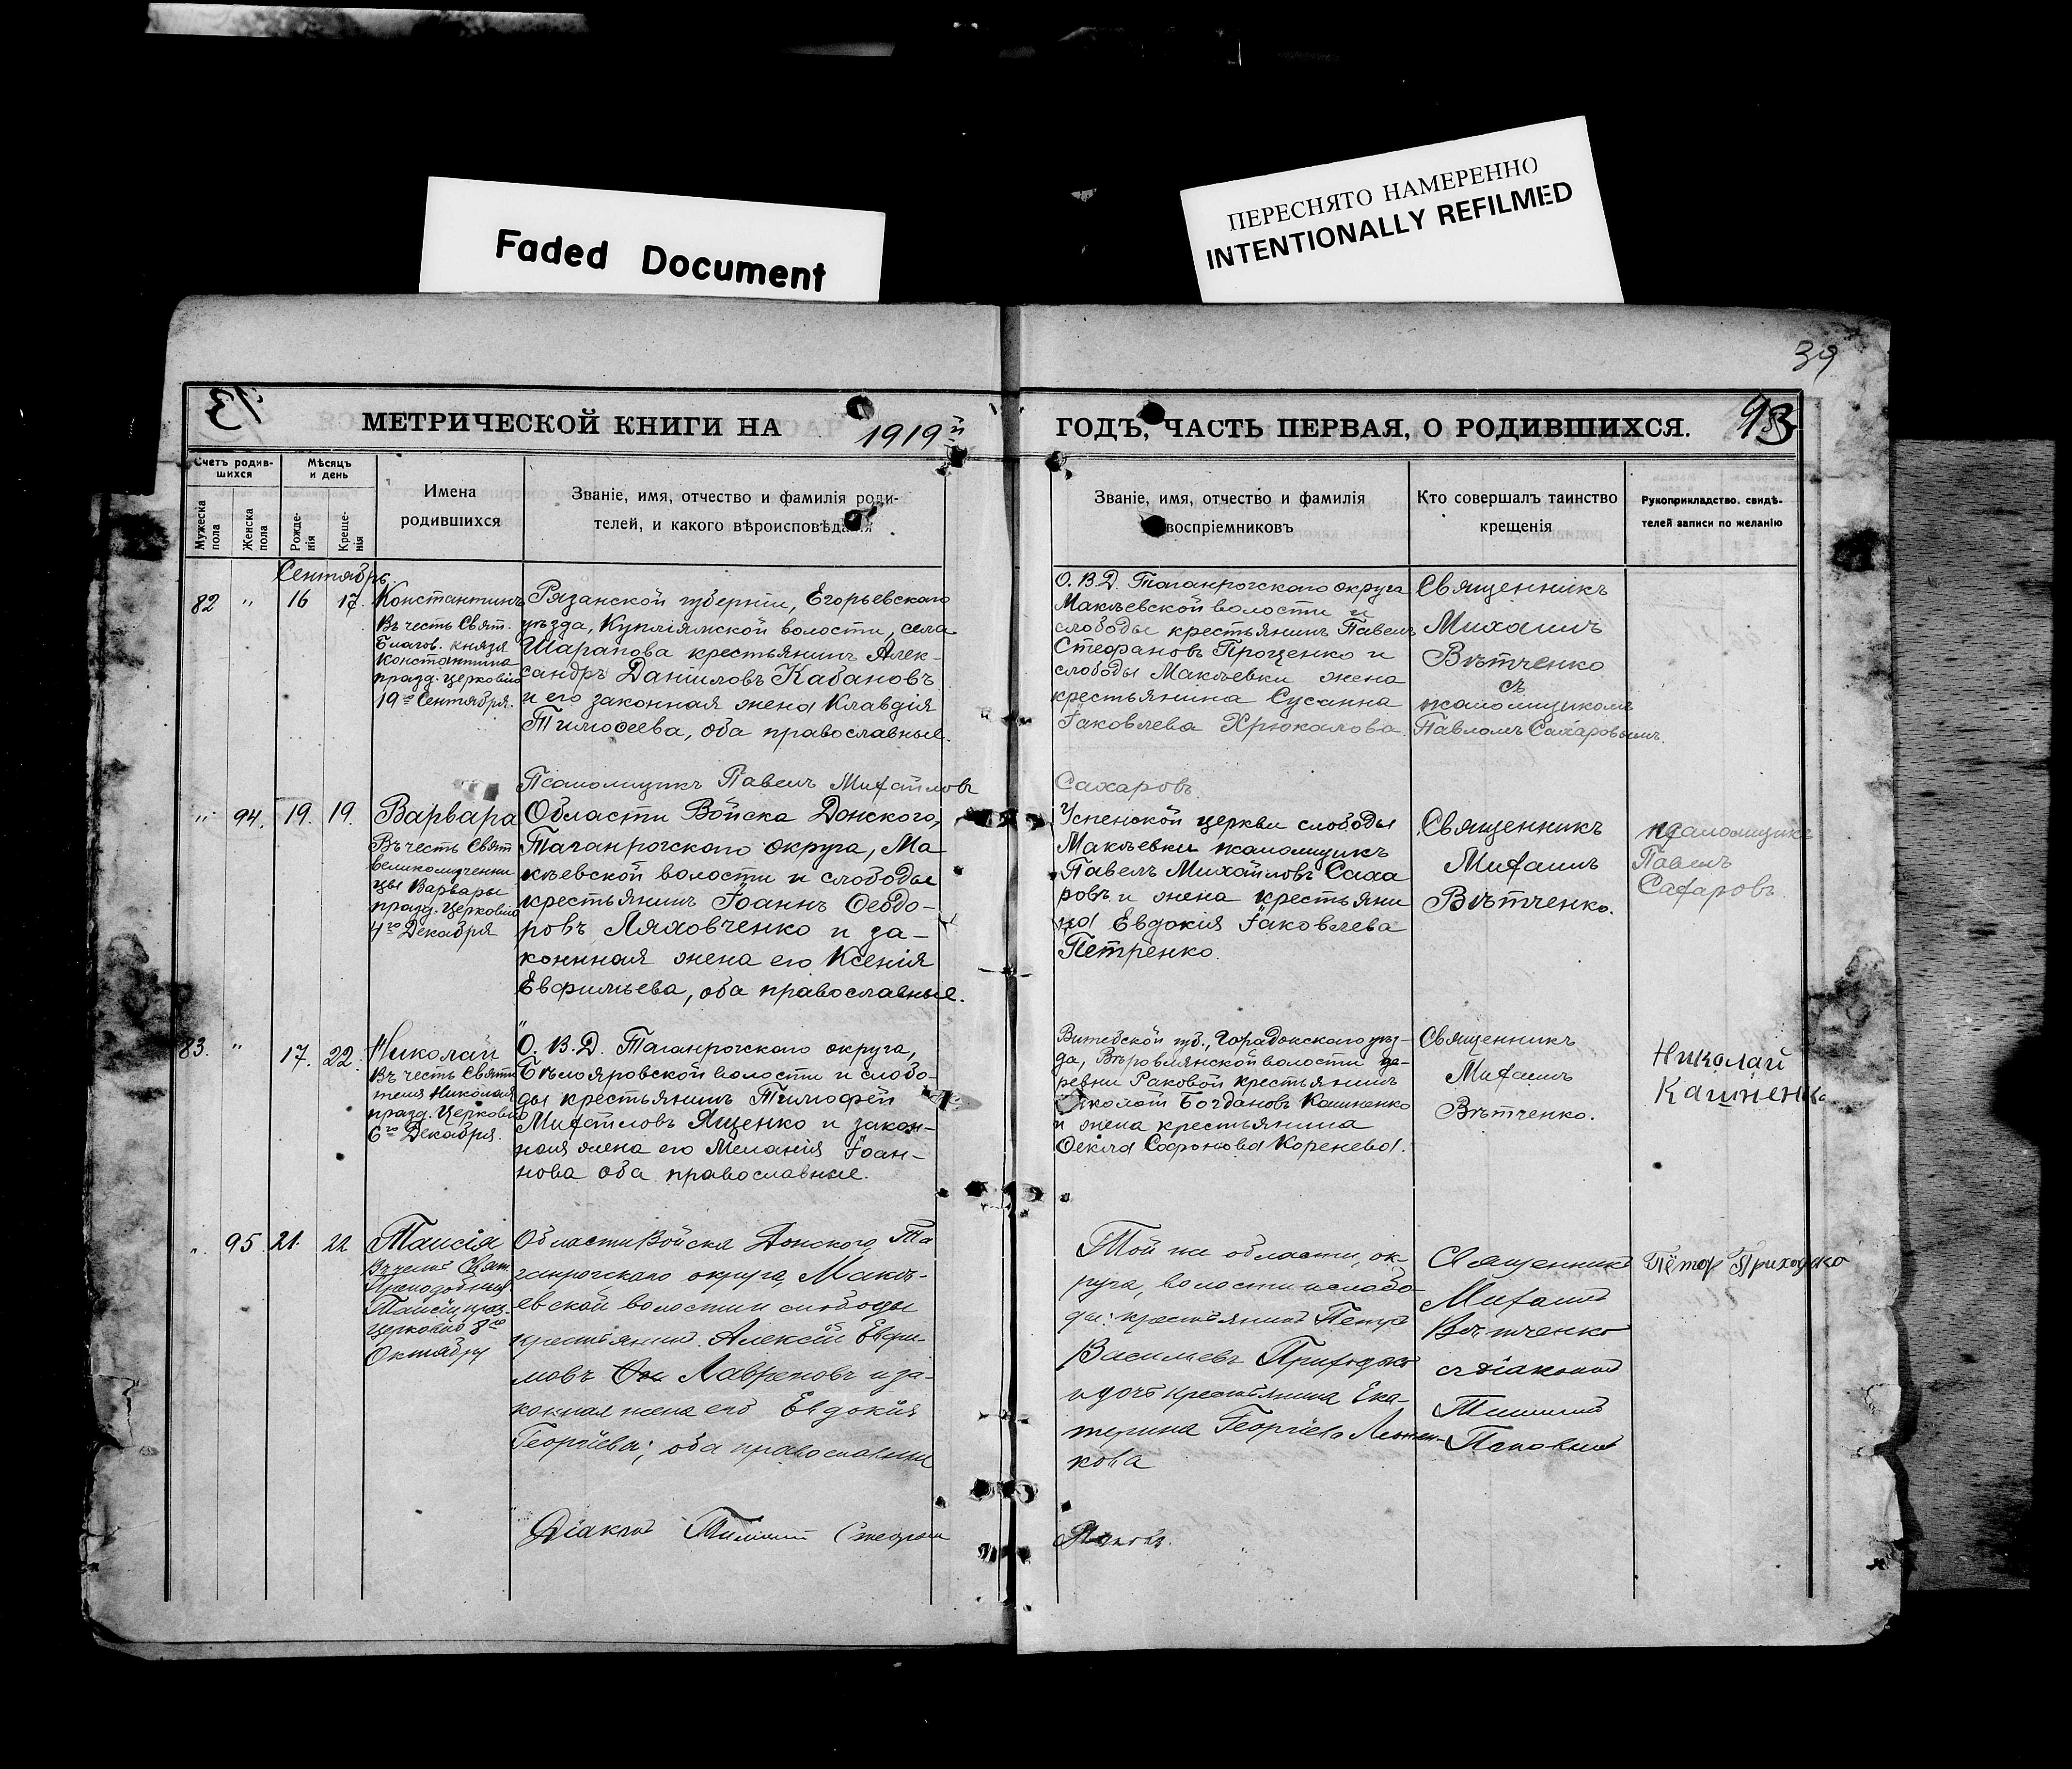 ПЕРЕСНЯТО НАМЕРЕННО
INTENTIONALLY REFILMED
Faded Document
39
93
МЕТРИЧЕСКОЙ КНИГИ НА 1919й
ГОДЪ, ЧАСТЬ ПЕРВАЯ, О РОДИВШИХСЯ.
Счетъ родив-
шихся
Мѣсяцъ
и день
Мужеска
пола
Женска
пола
Рожде-
нія
Креще-
нія
Имена
родившихся
Званіе, имя, отчество и фамилія роди-
телей, и какого вѣроисповѣданія
Званіе, имя, отчество и фамилія
воспріемниковъ
Кто совершалъ таинство
крещенія
Рукоприкладство. свидѣ-
телей записи по желанію
Сентябрь.
82 " 16 17.
Константинъ
Въ честь Свят.
Благов. князя
Константина
празд. церковію
19го Сентября.
Рязанской губерніи, Егорьевскаго
уѣзда, волости, села
Шарапова крестьянинъ Алек-
сандръ Даніиловъ Кабановъ
и его законная жена Клавдія
Тимоѳеева, оба православные.
О. В. Д. Таганрогскаго округа
Макѣевской волости и
слободы крестьянинъ Павелъ
Стефановъ Проценко и
слободы Макѣевки жена
крестьянина Сусанна
Іаковлева Хрюкалова.
Священникъ
Михаилъ
Вѣтченко
съ
псаломщикомъ
Павломъ Сахаровымъ.
Псаломщикъ Павелъ Михаиловъ
Сахаровъ.
" 94. 19. 19.
Варвара
Въ честь Свят
великомученни
цы Варвары
празд. Церковію
4го Декабря
Области Войска Донского,
Таганрогскаго округа, Ма
кѣевской волости и слободы
крестьянинъ Іоаннъ Ѳеодо-
ровъ Ляховченко и за-
коннная жена его Ксенія
Евфимьева, оба православные.
Успенской церкви слободы
Макѣевки псаломщикъ
Павелъ Михайловъ Саха
ровъ и жена крестьяни
на Евдокія Іаковлева
Петренко.
Священникъ
Михаилъ
Вѣтченко.
псаломщикъ
Павелъ
Сахаровъ
83. " 17. 22.
Николай
Въ честь Святи
теля Николая
празд. Церковію
6го Декабря.
О. В. Д. Таганрогскаго округа,
Бѣлояровской волости и слобо-
ды крестьянинъ Тимофей
Михаиловъ Ященко и закон-
ная жена его Меланія Іоан-
нова оба православные.
Витебской губ., Городокскаго уѣз-
да, волости де-
ревни Раковой крестьянинъ
Николай Богдановъ Кашненко
и жена крестьянина
Ѳекла Софонова Коренева.
Священникъ
Михаилъ
Вѣтченко.
Николай
Кашненко
" 95. 21. 22
Таисія
Въ честь Свят.
Преподобныя
Таисіи праз.
церковію 8го
Октября
Области Войска Донского Та
ганрогскаго округа, Макѣ-
евской волости и слободы
крестьянинъ Алексѣй Евфи-
мовъ Лавреновъ и за-
конная жена его Евдокія
Георгіева; оба православные
Той же области, ок-
руга, волости и слобо-
ды: крестьянинъ Петръ
Васильевъ Приходько
и дочь крестьянина Ека-
терина Георгіева
кова
Священникъ
Михаилъ
Вѣтченко
съ діакономъ
Поповымъ
Пётор Приходько
Діаконъ